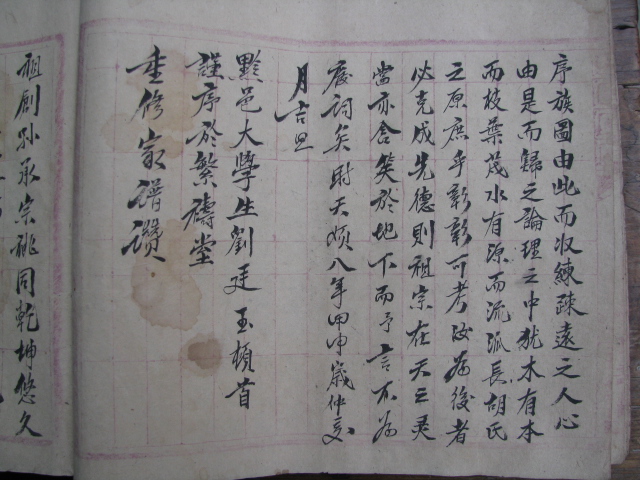 序族圖由此而收練疎遠之人心
由是而歸之論理之中犹木有本
而枝葉茂水有源而流派長胡氏
之原庶乎彰彰可考汝為後者
必克成先德則祖宗在天之灵
當亦含笑於地下而予言不為
虛詞矣時天順八年甲申歲仲夏
月吉旦
黟邑大學生劉廷玉頓首
謹序於繁禱堂
重修家譜讚
祖創孙承宗祧同乾坤悠久